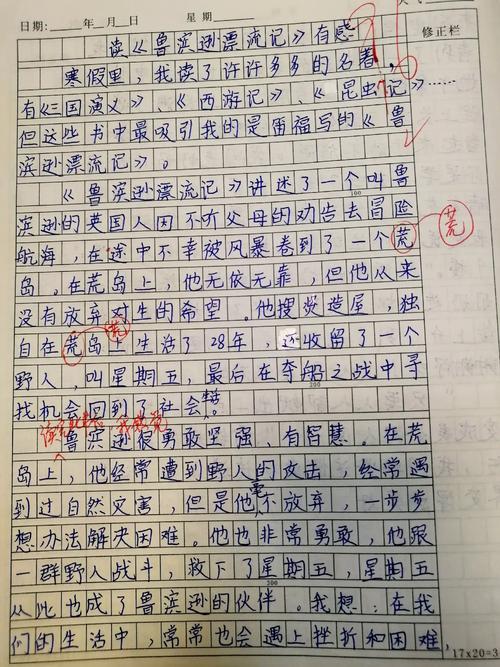 日期: 年 月 日 星期 修正栏
读《鲁滨逊漂流记》有感
寒假里，我读了许许多多的名著，
有《三国演义》、《西游记》、《昆虫记》……
但这些书中最吸引我的是雷福写的《鲁
滨逊漂流记》。
《鲁滨逊漂流记》讲述了一个叫鲁
100
滨逊的英国人因不听父母的劝告去冒险
航海，在途中不幸被风暴卷到了一个荒 荒
岛。在荒岛上，他无依无靠，但他从来
没有放弃对生的希望。他搜炎造屋，独
荒
自在荒岛上生活了28年，还收留了一个
野人，叫星期五，最后在夺船之战中寻
200
找机会回到了社会。
鲁滨逊很勇敢坚强、有智慧。在荒
岛上，他经常遭到野人的攻击，经常遇
到过自然灾害，但是他毫不放弃，一步步
想办法解决困难。他也非常勇敢，他跟
一群野人战斗，救下了星期五，星期五
300
从此也成了鲁滨逊的伙伴。我想：在我
们的生活中，常常也会遇上挫折和困难，
17×20=3